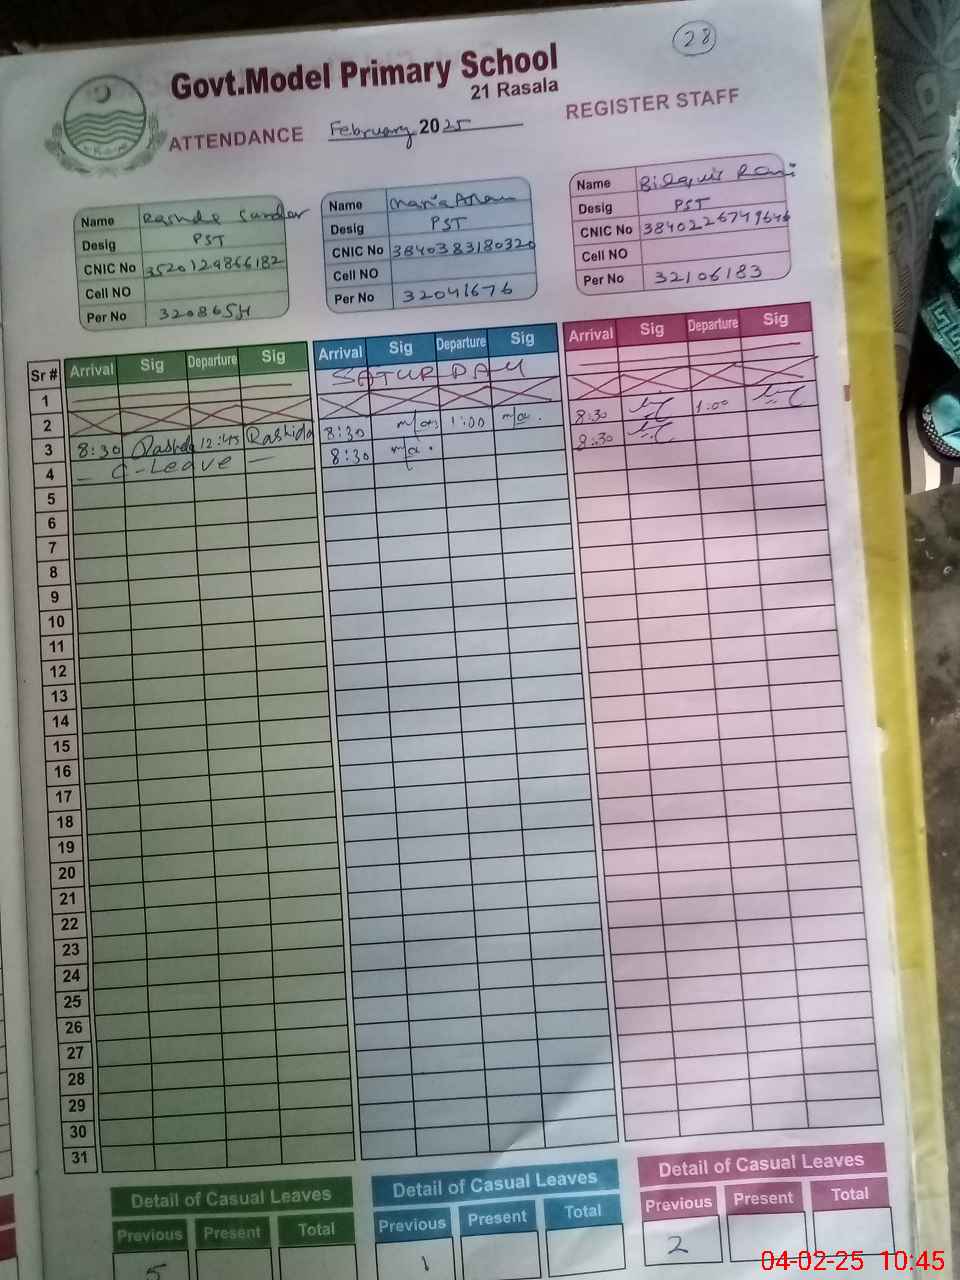 28
Govt.Model Primary School
21 Rasala
ATTENDANCE February 2025 REGISTER STAFF
Name Rashda Sardar
Desig PST
CNIC No 3520129866182
Cell NO
Per No
Name Maria
Desig PST
CNIC No 3840383180320
Cell NO
Per No 32041676
Name Bilquis Rani
Desig PST
CNIC No
Cell NO
Per No 32106183
Sr # Arrival Sig Departure Sig Arrival Sig Departure Sig Arrival Sig Departure Sig
1 SATURDAY
2
3 8:30 Rashida 12:45 Rashida 8:30 1:00 8:30 1:00
4 - C-Leave - 8:30 8:30
5
6
7
8
9
10
11
12
13
14
15
16
17
18
19
20
21
22
23
24
25
26
27
28
29
30
31
Detail of Casual Leaves
Previous Present Total
5
Detail of Casual Leaves
Previous Present Total
1
Detail of Casual Leaves
Previous Present Total
2
04-02-25 10:45